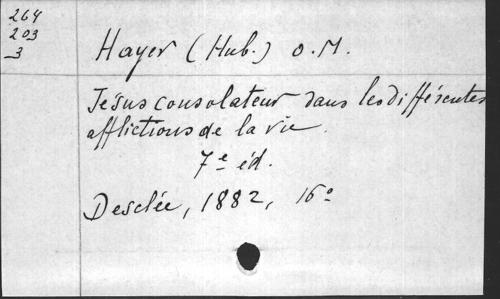 264
203
3
Hayer (Hub.) O.M.
Jésus consolateur dans les différentes
afflictions de la vie.
7e éd.
Desclée, 1882, 16°